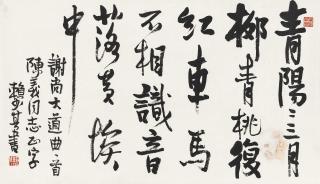 青陽二三月
柳青桃復
紅車馬
不相識音
落黄埃
中
謝尚大道曲
陳義同志正字
賴少其書